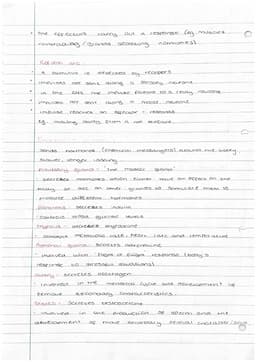 • the effectors carry out a response (eg muscles
contracting / glands secreting hormones)
Reflex arc
• A stimulus is detected by receptors
• impulses are sent along a sensory neurone
• in the CNS the impulse passes to a relay neurone
• impulses are sent along a motor neurone
• impulse reaches an effector - response
eg. moving away from a hot surface
• sends hormones (chemical messengers) around the body
• slower, longer lasting
Pituitary gland - 'the master gland'
• secretes hormones which either have an effect on the
body or act on other glands to stimulate them to
produce different hormones
Pancreas - secretes insulin
• controls blood glucose levels
Thyroid - secretes thyroxine
• controls metabolic rate, heart rate and temperature
Adrenal gland - secretes adrenaline
• involved with 'fight or flight' response (body's
response to stressful situations)
Ovary - secretes oestrogen
• involved in the menstrual cycle and development of
female secondary characteristics
Testes - secretes testosterone
• involved in the production of sperm and the
development of male secondary sexual characteristics